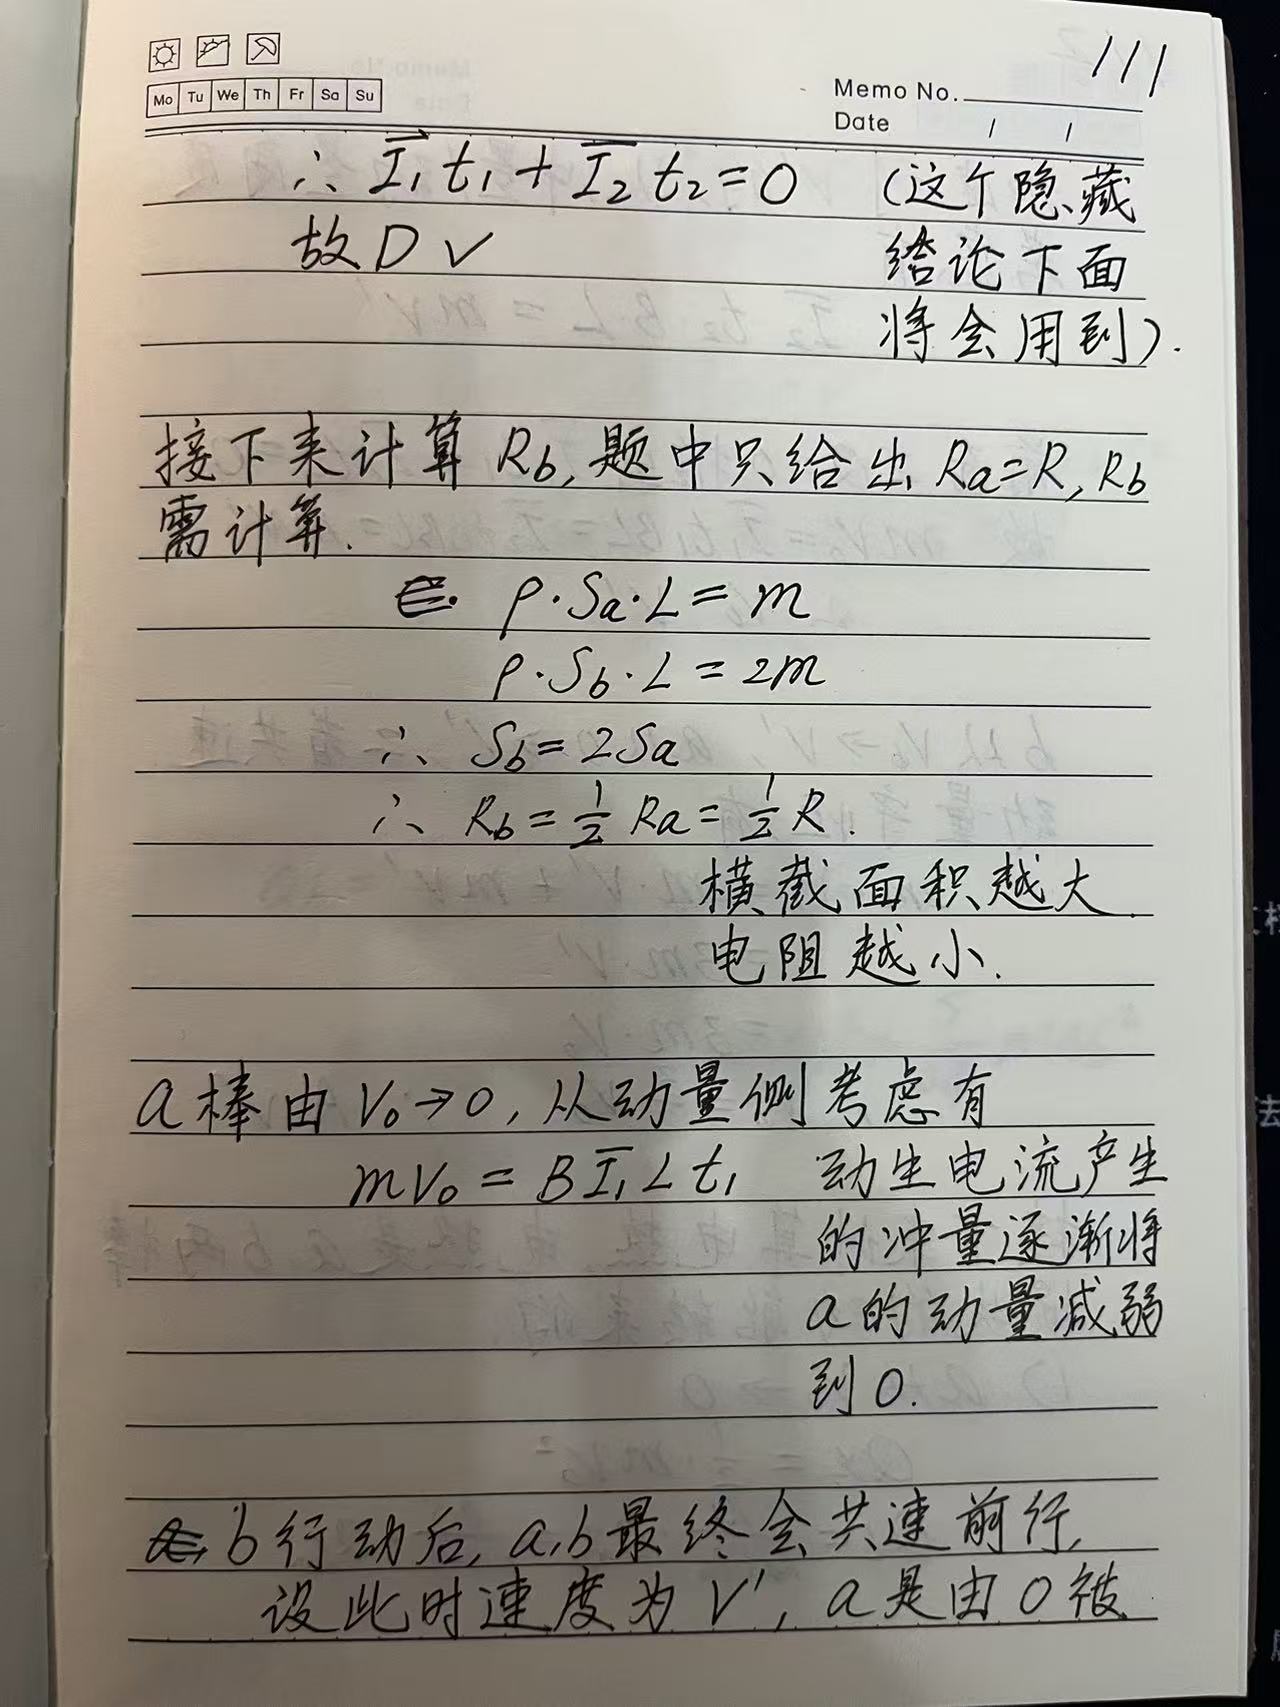 111
Mo Tu We Th Fr Sa Su
Memo No.
Date / /
∴ I₁t₁ + I₂t₂ = 0 (这个隐藏
故D√ 结论下面
将会用到).
接下来计算Rb,题中只给出Ra=R,Rb
需计算.
ρ·Sa·L=m
ρ·Sb·L=2m
∴ Sb=2Sa
∴ Rb=½Ra=½R.
横截面积越大
电阻越小.
a棒由V₀→0,从动量侧考虑有
mV₀=BI₁Lt₁ 动生电流产生
的冲量逐渐将
a的动量减弱
到0.
b行动后,a,b最终会共速前行,
设此时速度为V',a是由0被